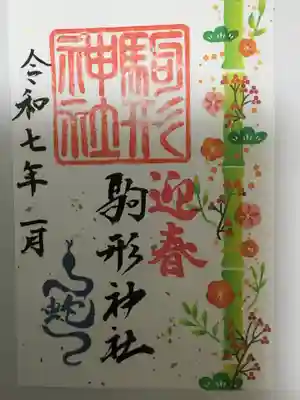 迎春
駒形神社
駒形
神社
蛇
令和七年一月